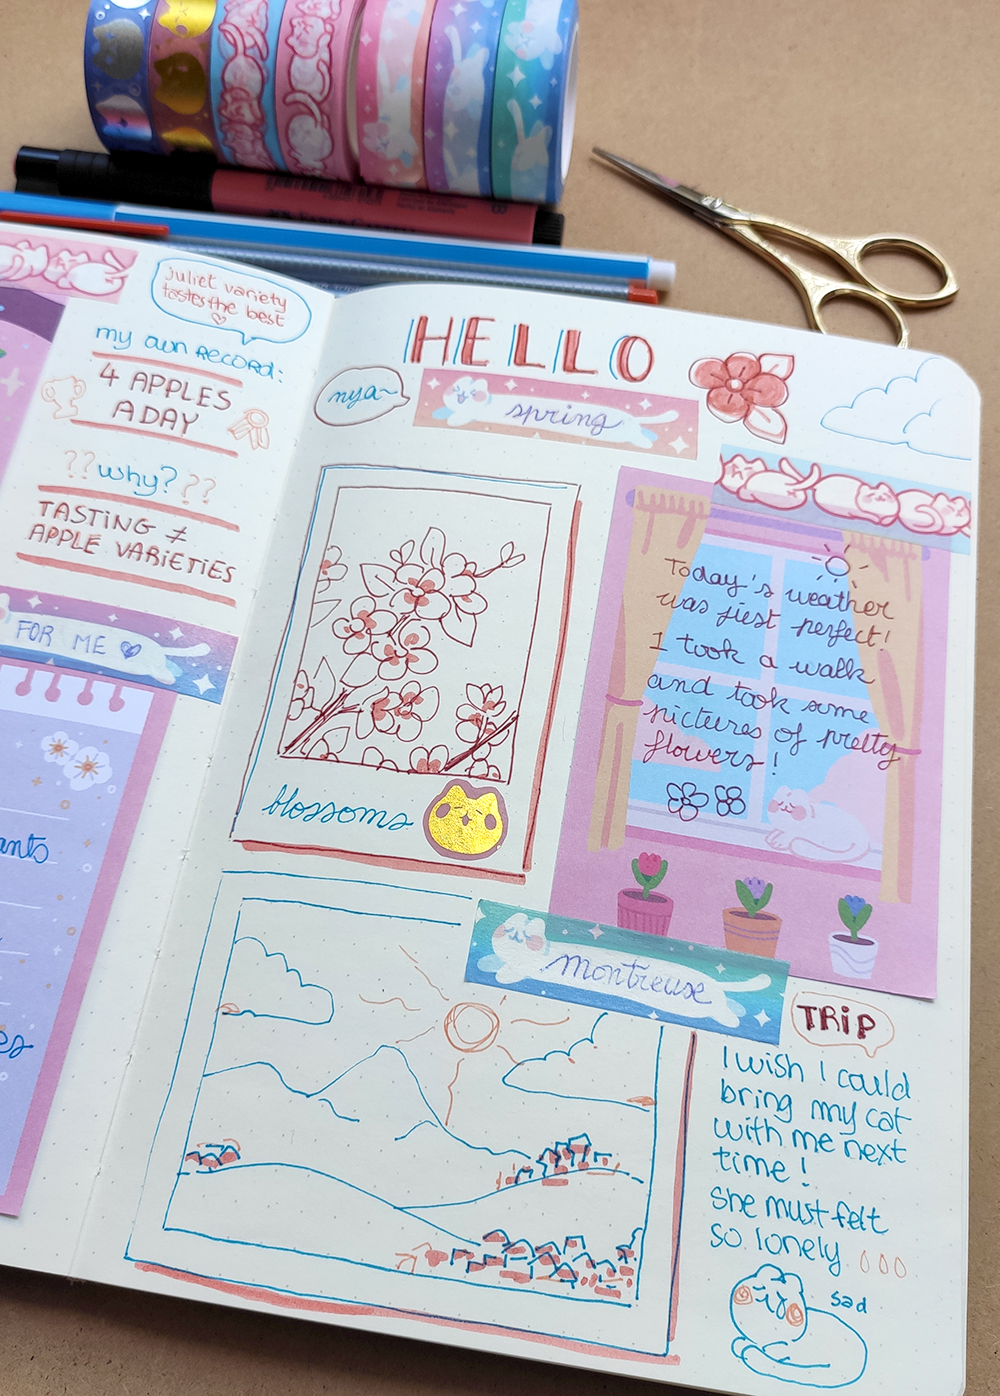 Juliet variety
tastes the best
my own RECORD:
4 APPLES
A DAY
?? why? ??
TASTING ≠
APPLE VARIETIES
FOR ME
HELLO
nya~
spring
Today's weather
was just perfect!
I took a walk
and took some
pictures of pretty
flowers!
blossoms
montreux
TRIP
I wish I could
bring my cat
with me next
time!
She must felt
so lonely
sad